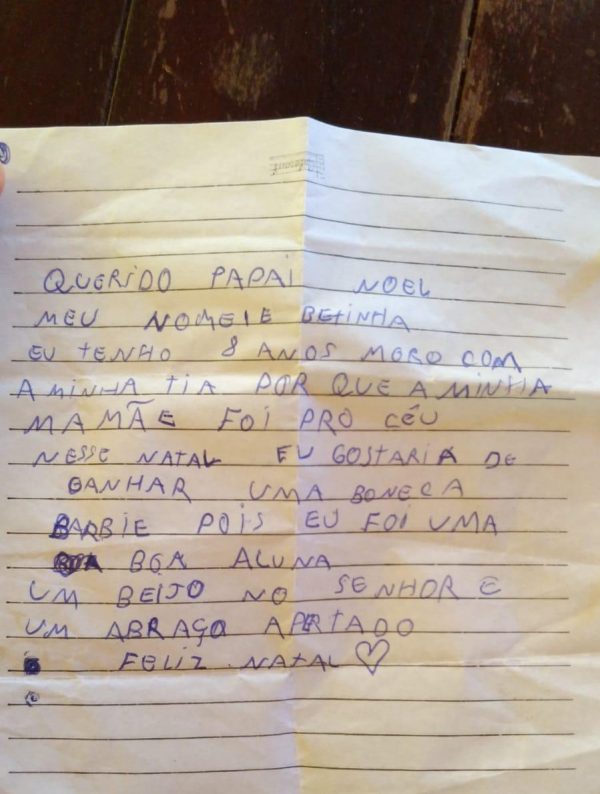 QUERIDO PAPAI NOEL
MEU NOMEIE BETINHA
EU TENHO 8 ANOS MORO COM
A MINHA TIA POR QUE A MINHA
MAMÃE FOI PRO CÉU
NESSE NATAL EU GOSTARIA DE
GANHAR UMA BONECA
BARBIE POIS EU FOI UMA
BOA ALUNA
UM BEIJO NO SENHOR E
UM ABRAÇO APERTADO
FELIZ NATAL